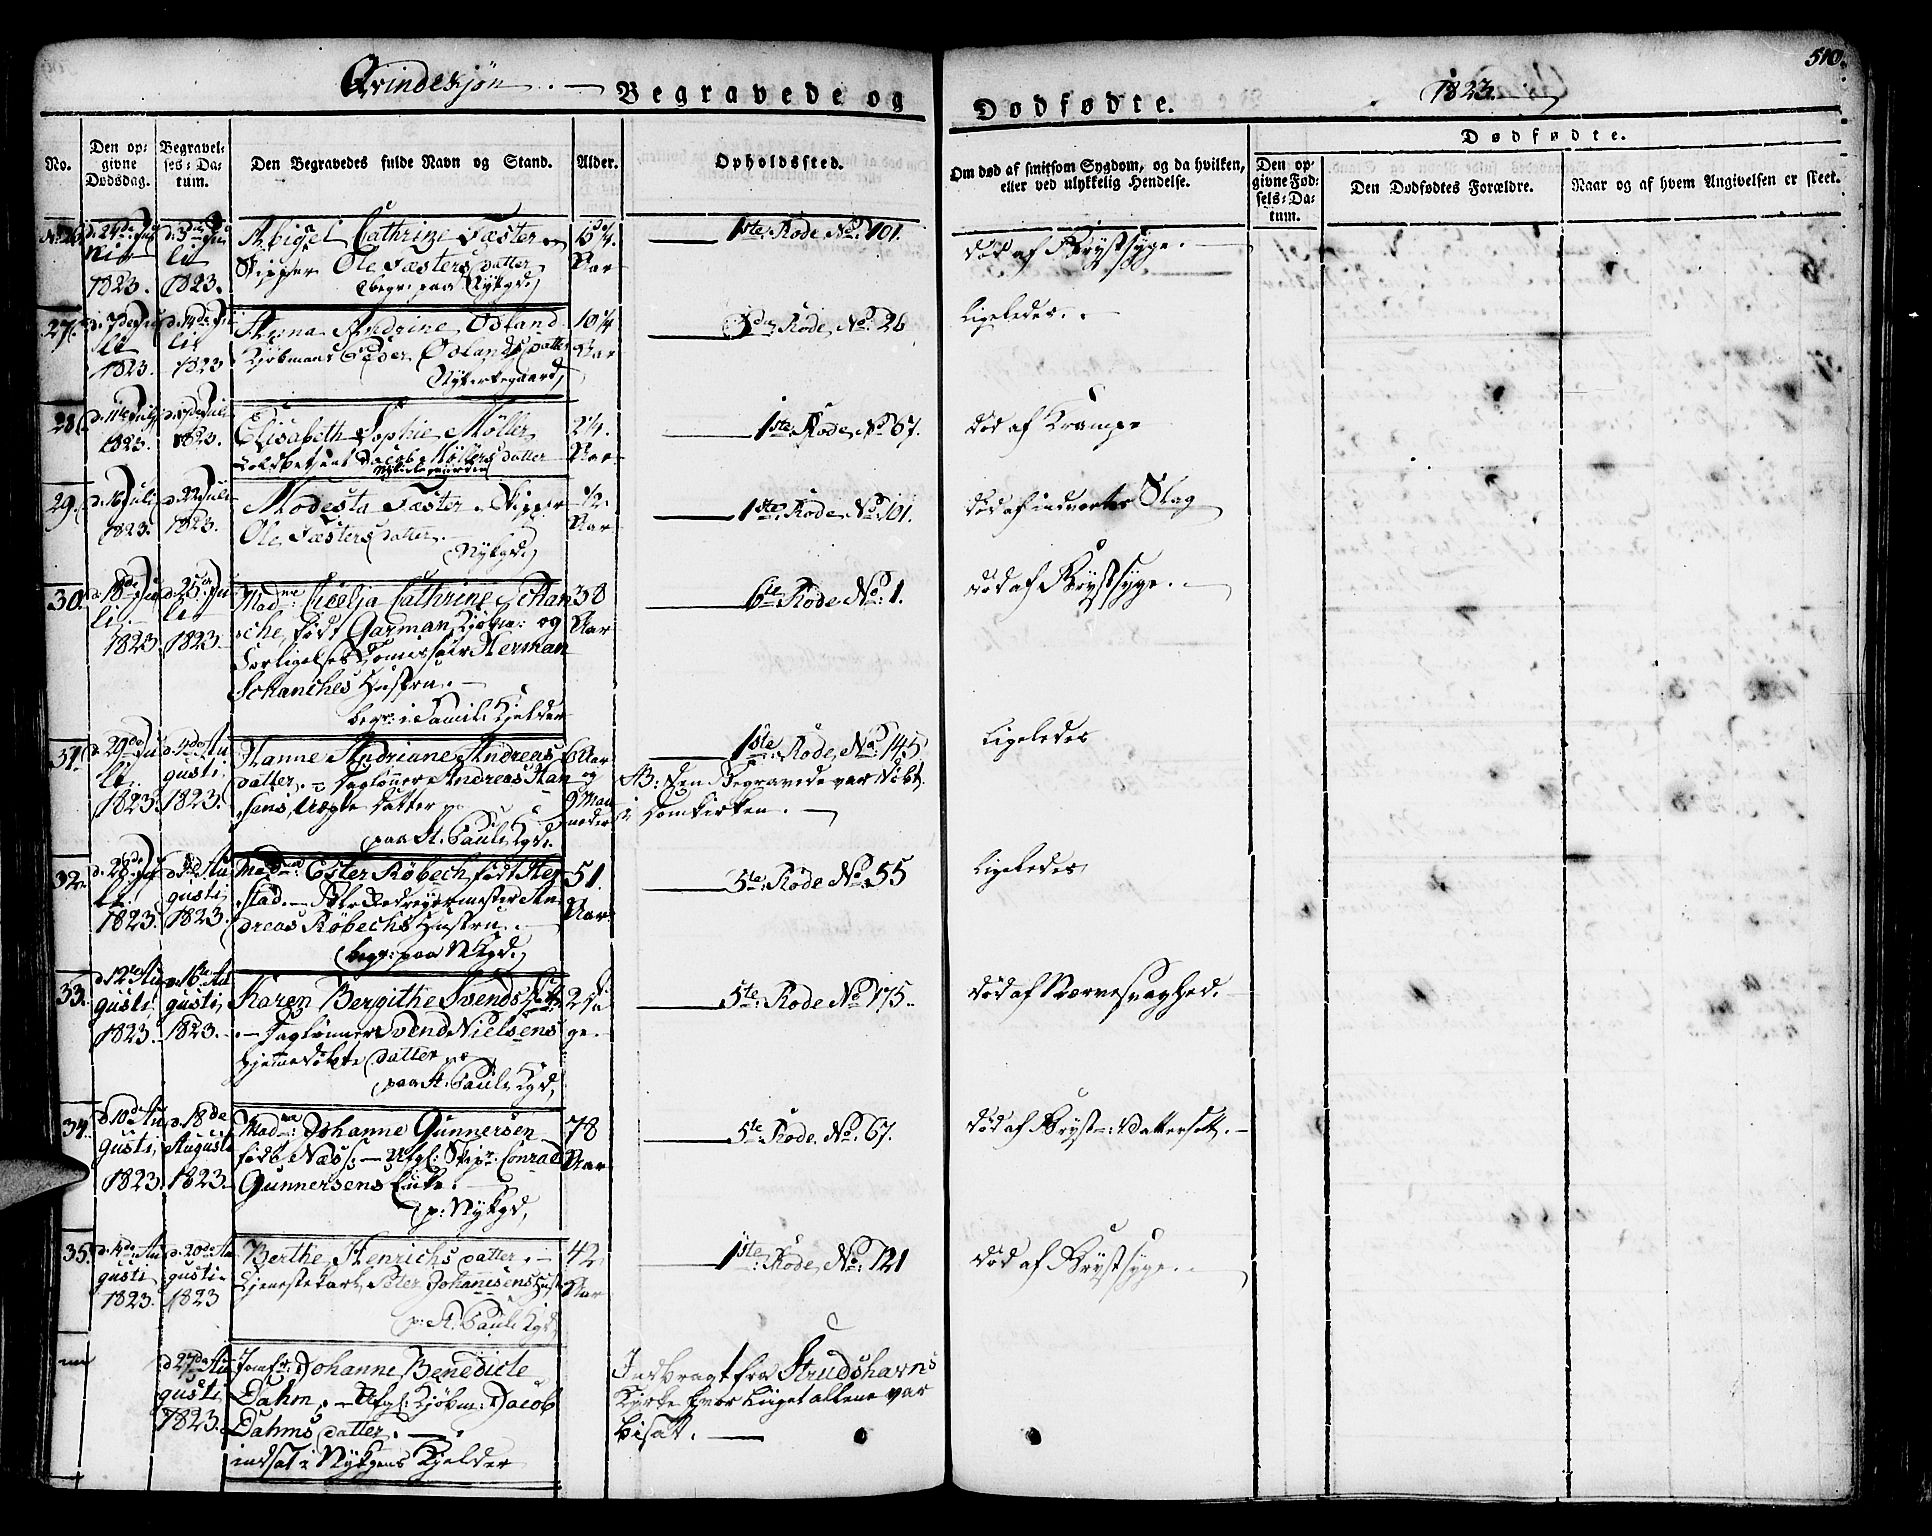 Qvindekjøn. Begravede og Dødfødte. 1823. 510.
No. Den opgivne Dødsdag. Begravelses-Datum. Den Begravedes fulde Navn og Stand. Alder. Opholdssted. Om død af smitsom Sygdom, og da hvilken, eller ved ulykkelig Hendelse.
Dødfødte.
Den opgivne Fødsels-Datum. Den Dødfødtes Forældre. Naar og af hvem Angivelsen er skeet.
No 26. d. 24de Juni 1823. Juli 1823.
Abigel Cathrine Fæster
Skipper Ole Fæsters Datter
begr: paa Nykgd.
Aar
1ste Rode No. 101.
død af Brystsyge.
27. d. 7de Juli 1823. d. 14de Juli 1823
Anna Andrine Østand
Kjøbmand Peder Østands Datter
Nykirkegaard
10 1/4 Aar
Rode No. 26
Ligeledes.
28. d. 11te Juli 1823. d. 17de Juli 1823.
Elisabeth Sophie Möller
Jacob Möllers Datter
Nykirkegaarden
2 1/4. Aar
1ste Rode No 67.
død af Krampe
29. d. 16 Juli 1823. d. 22 Juli 1823.
Modesta Fæster. Skipper
Ole Fæsters Datter.
Nykgd.
1/2. Aar
1ste Rode No. 101.
død af indvortes Slag
30. d. 18de Juli 1823. d. 25de Juli 1823.
Madme Cicelja Cathrine Schan
sche, født Garman, Kjøbm: og
Forligelses Commissair Herman
Schanches Hustru.
begr: i Famil: Kjelder
38 Aar
6te Rode No. 1.
død af Brystsyge.
31. d. 29de Juli 1823. d. 4de Augusti 1823.
Hanne Andriane Andreas
datter. Dagløner Andreas Han
sens, Ægte datter
paa St. Pauli Kgd.
6 Aar og 9 Maaneder
1ste Rode, No. 145
NB: den Begravede var døbt
i Domkirken.
Ligeledes
32. d. 28de Juli 1823. d. Augusti 1823.
Madme Ester Röbech født
stad. mester An
dreas Röbechs Hustru.
begr: paa N Kgd.
51. Aar
5te Rode No. 55
Ligeledes
33. d. 12te Augusti 1823. d. 16de Augusti, 1823.
Karen Bergithe Svends Datt:
Dagløner Svend Nielsens
hjemmedøbte datter
paa St. Pauli Kgd.
2 Dage.
5te Rode No 175.
død af Nervesvaghed.
34. d. 10de Augusti, 1823. d. 18de Augusti 1823.
Madme Johanne Gunnersen
født Næss: Afgl: Skipr. Conrad
Gunnersens Enke.
p: Nykgd,
78 Aar
5te Rode. No. 67.
død af Bryst: Vattersot.
35. d. Augusti 1823. d. 20de Augusti 1823
Berthe Henrichs datter.
Tjenestekarl Peter Johannesens Hust:
p: St. Pauli Kgd.
42 Aar
1ste Rode, No: 121
død af Brystsyge.
d. 27de Augusti 1823.
Jomfr: Johanne Benedicte
Dahm, Afgl: Kjøbm: Jacob
Dahms datter.
indsat i Nykgens Kjelder
Indbragt fra Strudshavns
Kyrke hvor Liiget allene var
bisatt.